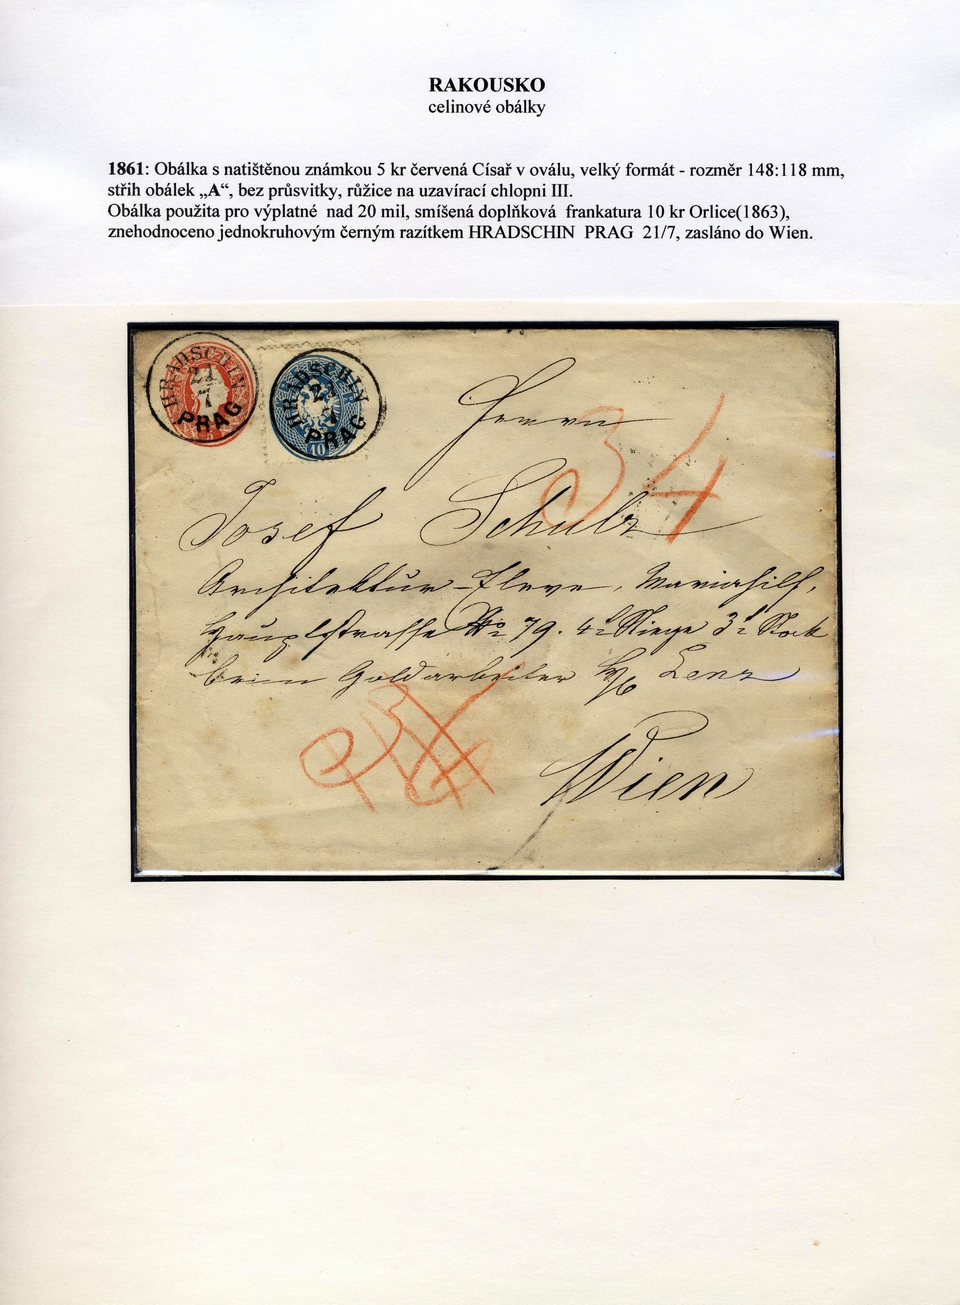 RAKOUSKO
celinové obálky
1861: Obálka s natištěnou známkou 5 kr červená Císař v oválu, velký formát - rozměr 148:118 mm,
střih obálek „A“, bez průsvitky, růžice na uzavírací chlopni III.
Obálka použita pro výplatné nad 20 mil, smíšená doplňková frankatura 10 kr Orlice(1863),
znehodnoceno jednokruhovým černým razítkem HRADSCHIN PRAG 21/7, zasláno do Wien.
HRADSCHIN
21
7
PRAG
HRADSCHIN
21
7
PRAG
10
Herrn
34
Josef Schulz
Architektur-Eleve, Mariahilf,
Hauptstrasse No 79. 4te Stiege 3t Stock
beim Goldarbeiter H Lenz
Wien